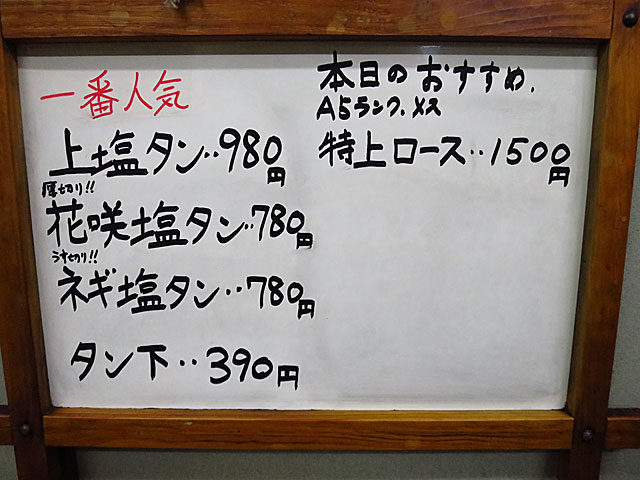 一番人気
上塩タン‥980円
厚切り!!
花咲塩タン‥780円
うす切り!!
ネギ塩タン‥780円
タン下‥390円
本日のおすすめ.
A5ランク.メス
特上ロース‥1500円